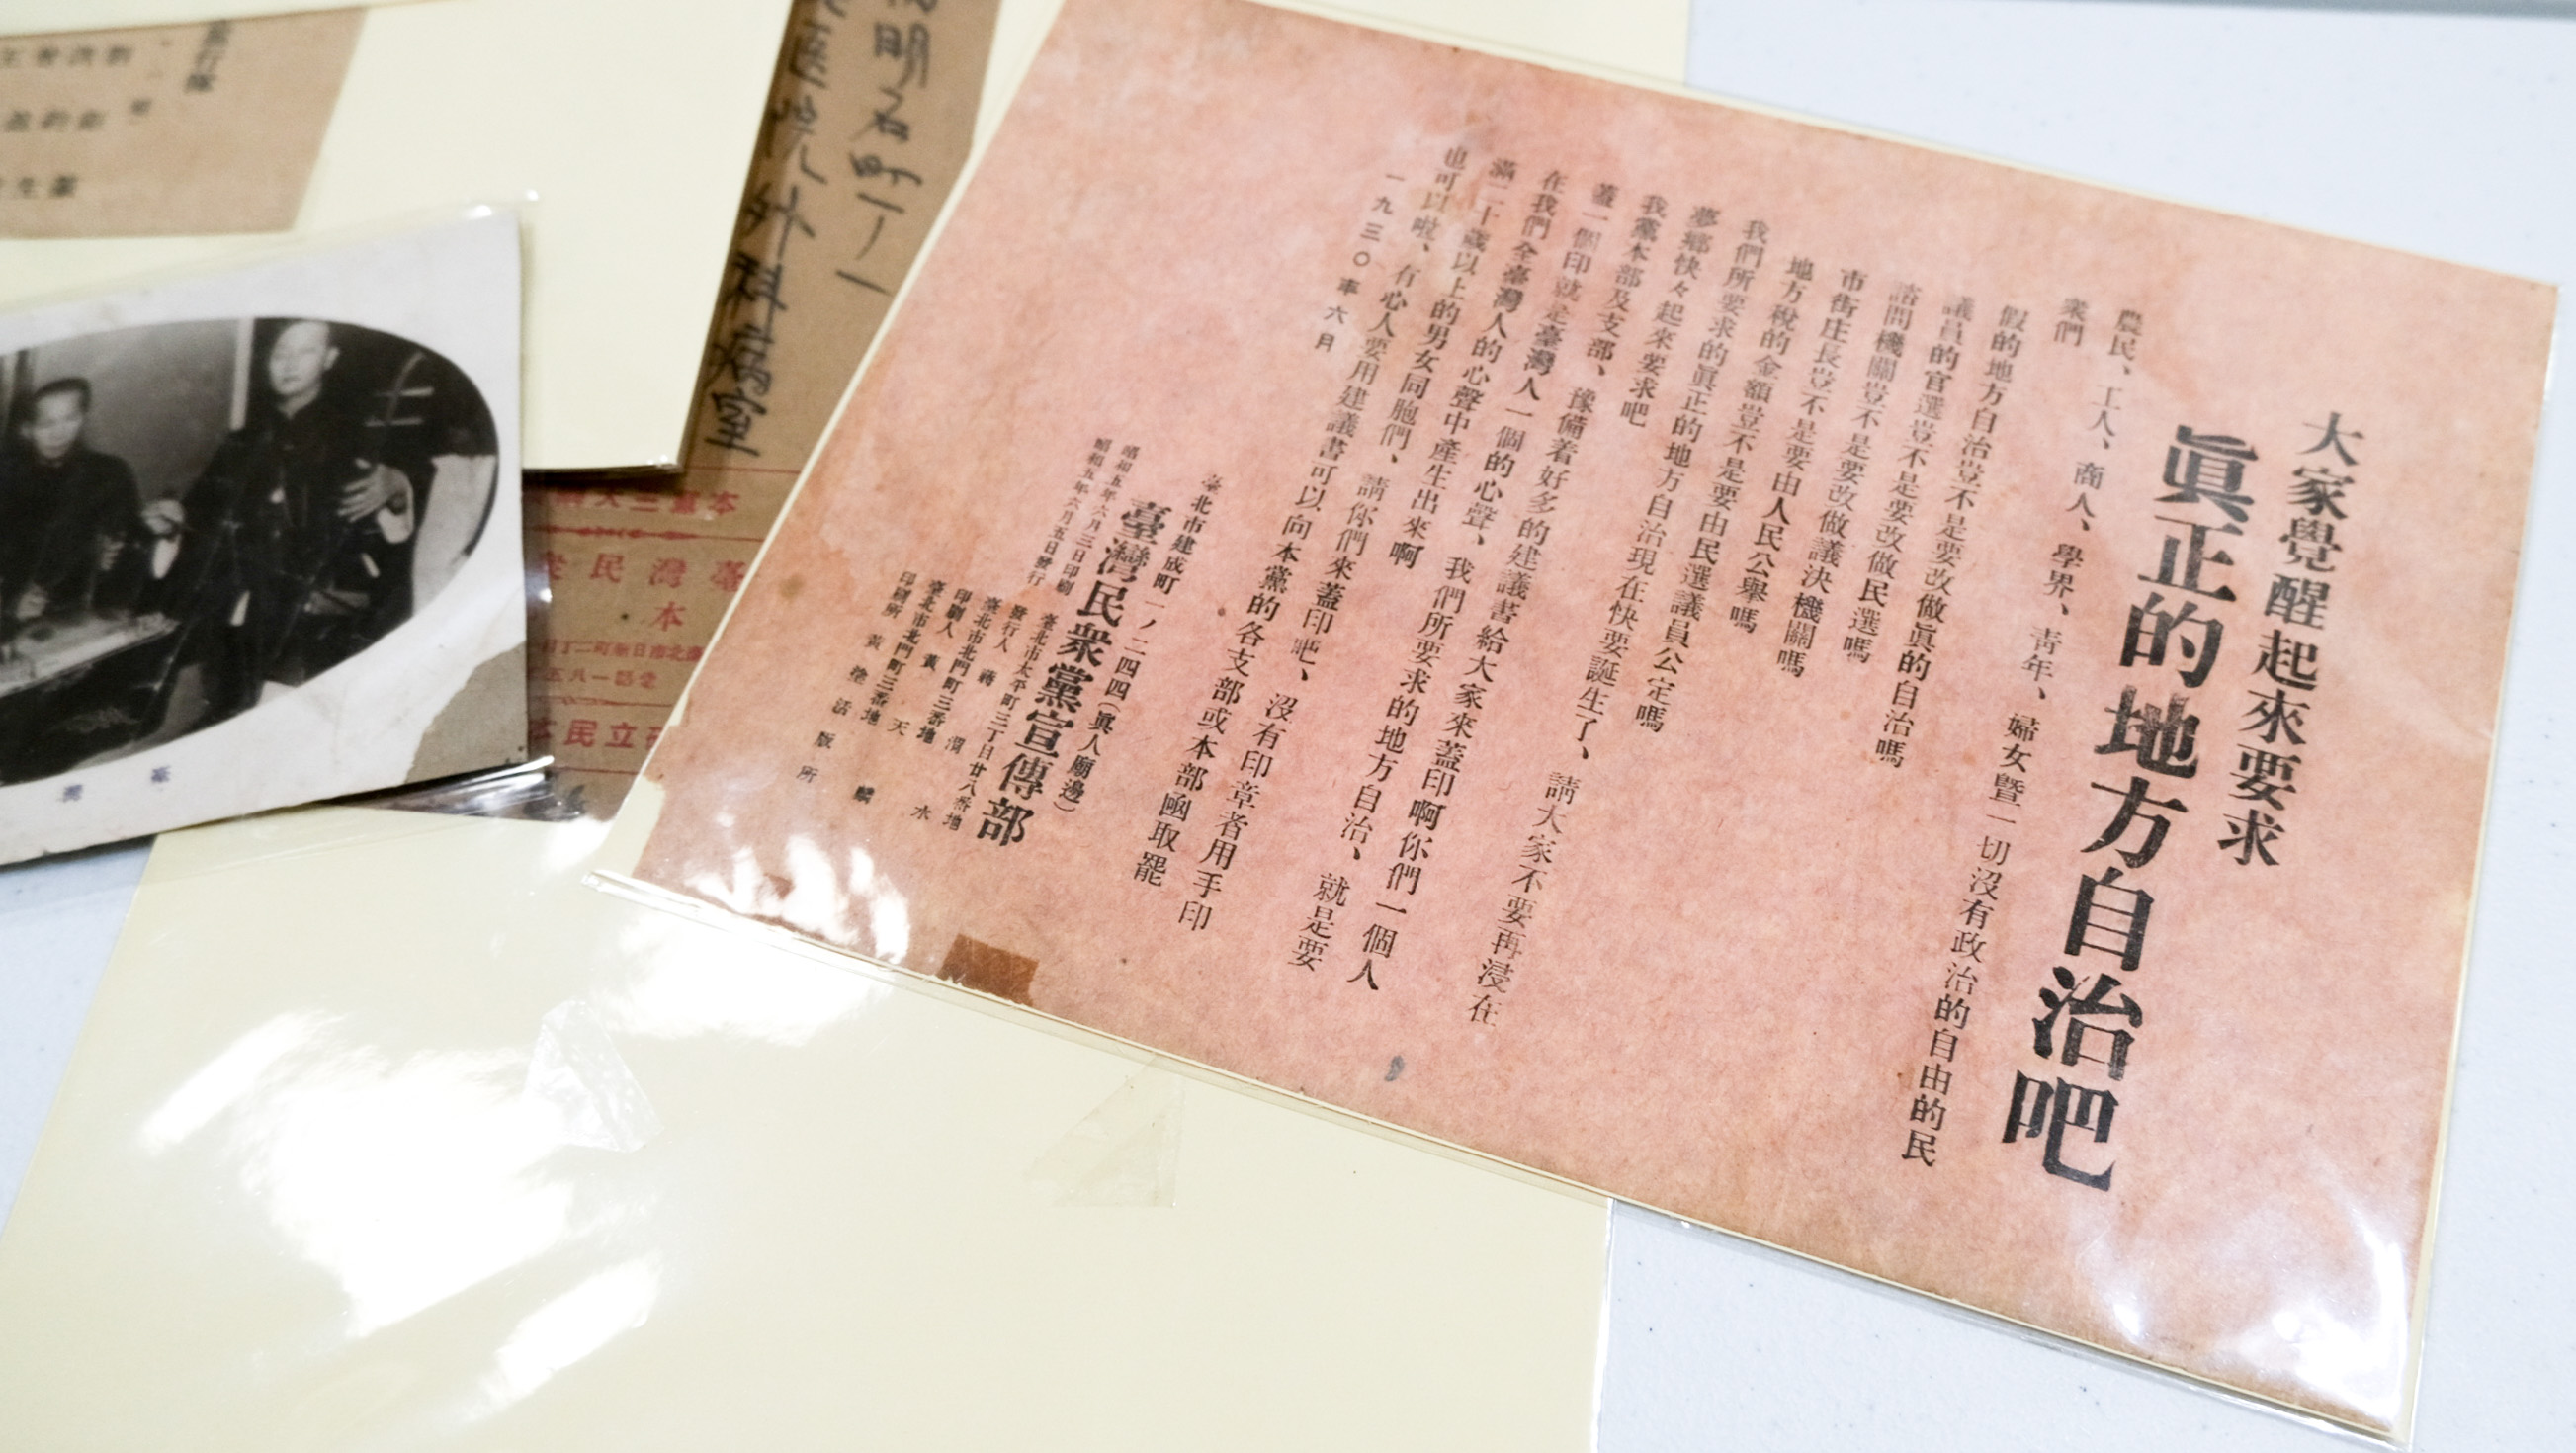 大家覺醒起來要求
眞正的地方自治吧
農民、工人、商人、學界、靑年、婦女曁一切沒有政治的自由的民
衆們
假的地方自治豈不是要改做眞的自治嗎
議員的官選豈不是要改做民選嗎
諮問機關豈不是要改做議決機關嗎
市街庄長豈不是要由人民公舉嗎
地方稅的金額豈不是要由民選議員公定嗎
我們所要求的眞正的地方自治現在快要誕生了、請大家不要再浸在
夢鄉快々起來要求吧
我黨本部及支部、豫備着好多的建議書給大家來蓋印啊你們一個人
蓋一個印就是臺灣人一個的心聲、我們所要求的地方自治、就是要
在我們全臺灣人的心聲中產生出來啊
滿二十歲以上的男女同胞們、請你們來蓋印吧、沒有印章者用手印
也可以啦、有心人要用建議書可以向本黨的各支部或本部凾取罷
一九三〇年六月
臺北市建成町一ノ二四四(眞人廟邊)
臺灣民衆黨宣傳部
昭和五年六月三日印刷
昭和五年六月五日發行
臺北市太平町三丁目廿八番地
發行人 蔣渭水
臺北市北門町三番地
印刷人 黃天
臺北市北門町三番地
印刷所 黃 活版所
明石町一ノ一
医院外科病室